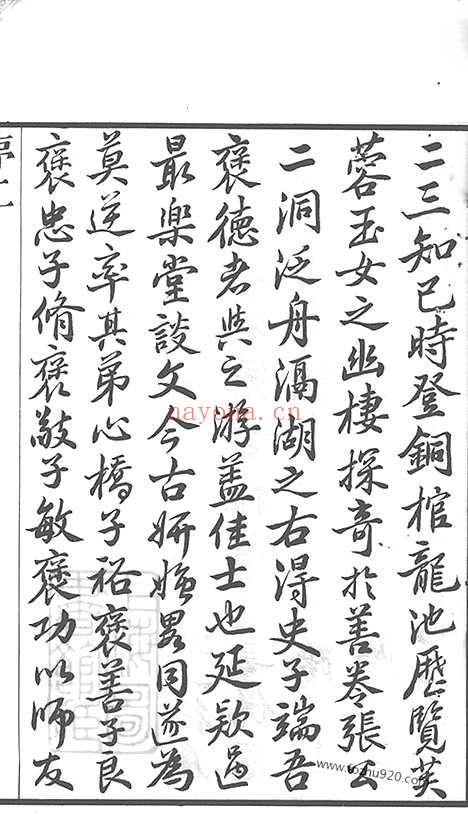 二三知己時登銅棺龍池歷覽芙
蓉玉女之幽棲探奇於善卷張公
二洞泛舟滆湖之右得史子端吾
褒德者與之游蓋佳士也延欵過
最樂堂談文今古妍媸畧同遂為
莫逆率其弟心橋子裕褒善子良
褒忠子脩褒敬子敏褒功以師友
序二
nayona.cn
www.fozhu920.com